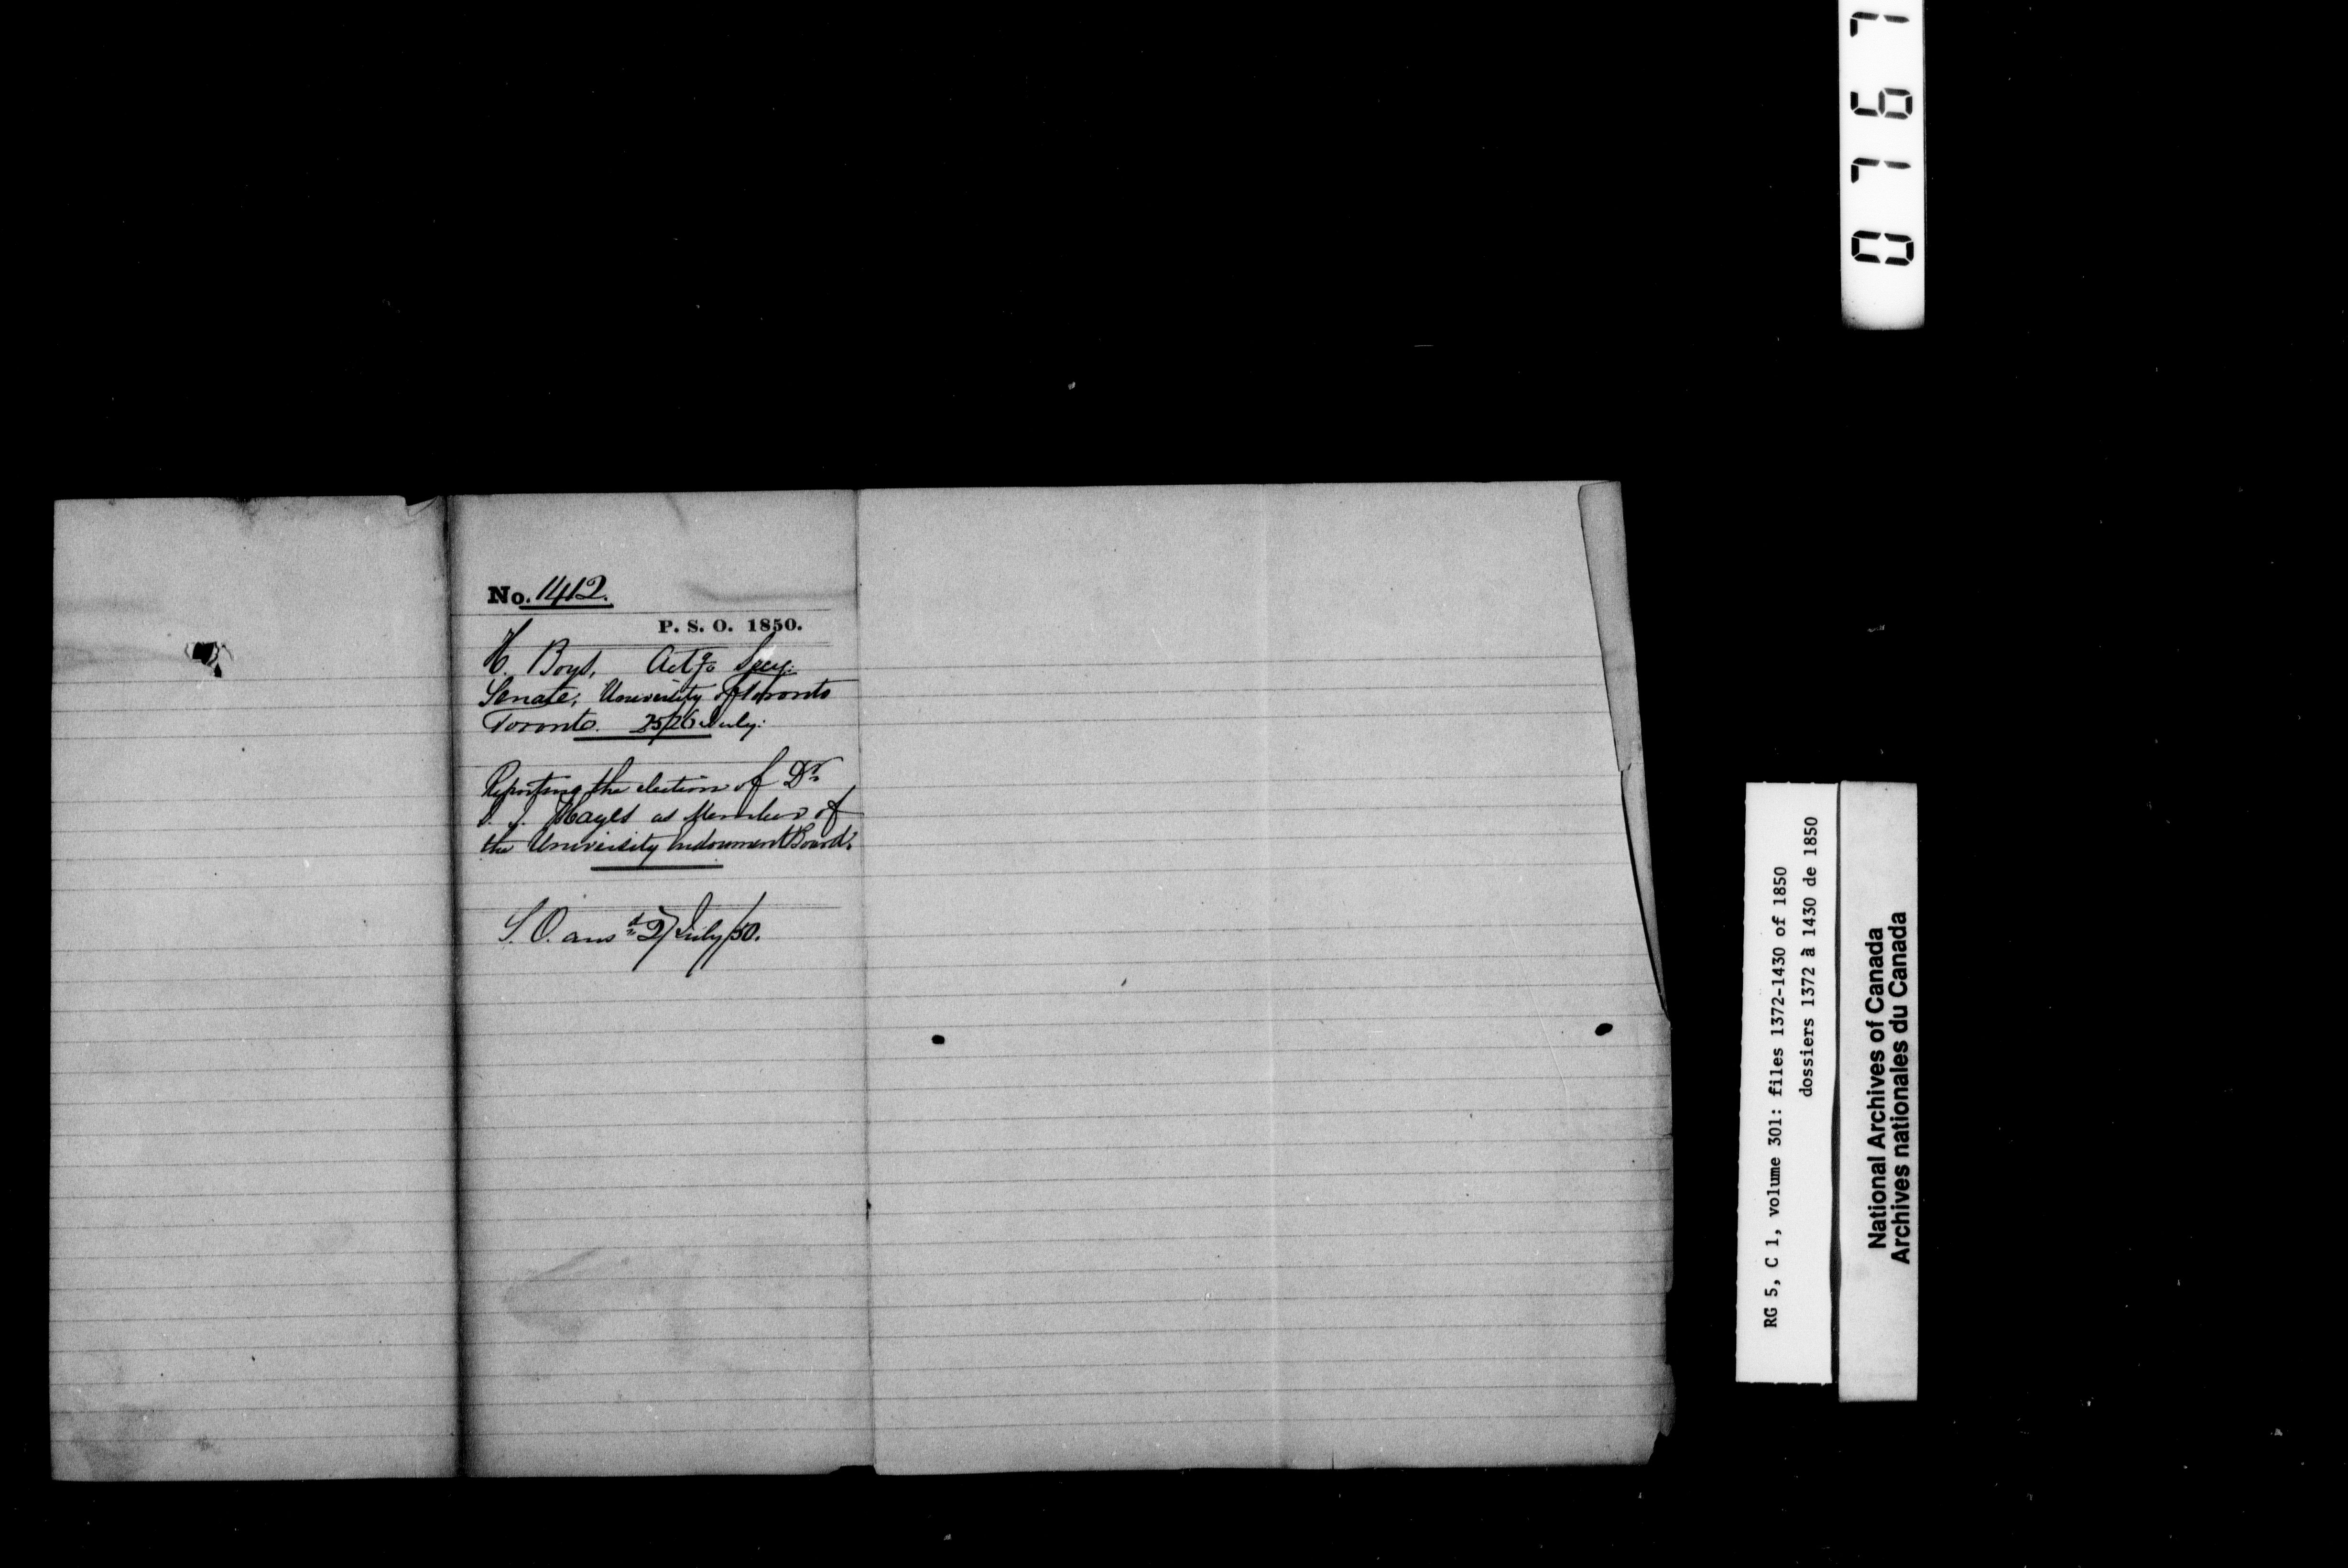 No. 1412.
P. S. O. 1850.
H. Boys, Actg Secy.
Senate, University of Toronto
Toronto. 25/26 July.
Reporting the election of Dr
J. Hayes as Member of
the University Endowment Board.
S. O. ansd 27 July/50.
0767
RG 5, C 1, volume 301: files 1372-1430 of 1850
dossiers 1372 à 1430 de 1850
National Archives of Canada
Archives nationales du Canada